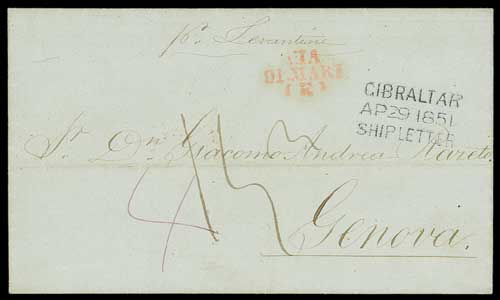 pr. Levantine
VIA
DI MARE
(E)
GIBRALTAR
AP 29 1851
SHIP LETTER
Sr. Dn. Giacomo Andrea
4
Genova.